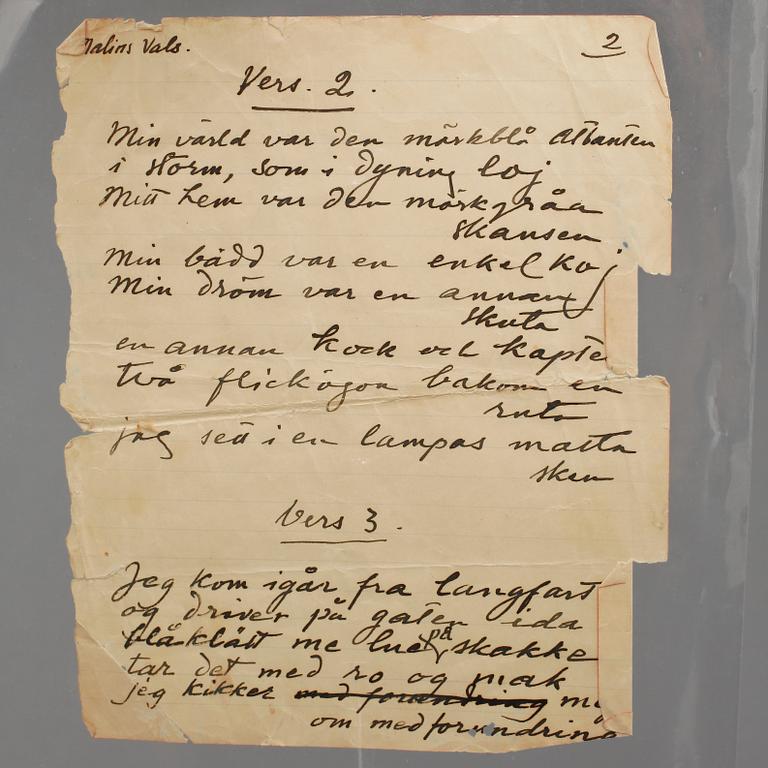 Jalins Vals.
2
Vers. 2.
Min värld var den mörkblå Atlanten
i storm, som i dyning loj
Mitt hem var den mörkgråa
skansen
Min bädd var en enkel koj
Min dröm var en annan
skuta
en annan kock och kapte
två flickögon bakom en
ruta
jag sett i en lampas matta
sken
Vers 3.
Jeg kom igår fra langfart
og driver på gaten ida
blåklätt me lue på skakke
tar det med ro og mak
jeg kikker med forundring
om med forundring